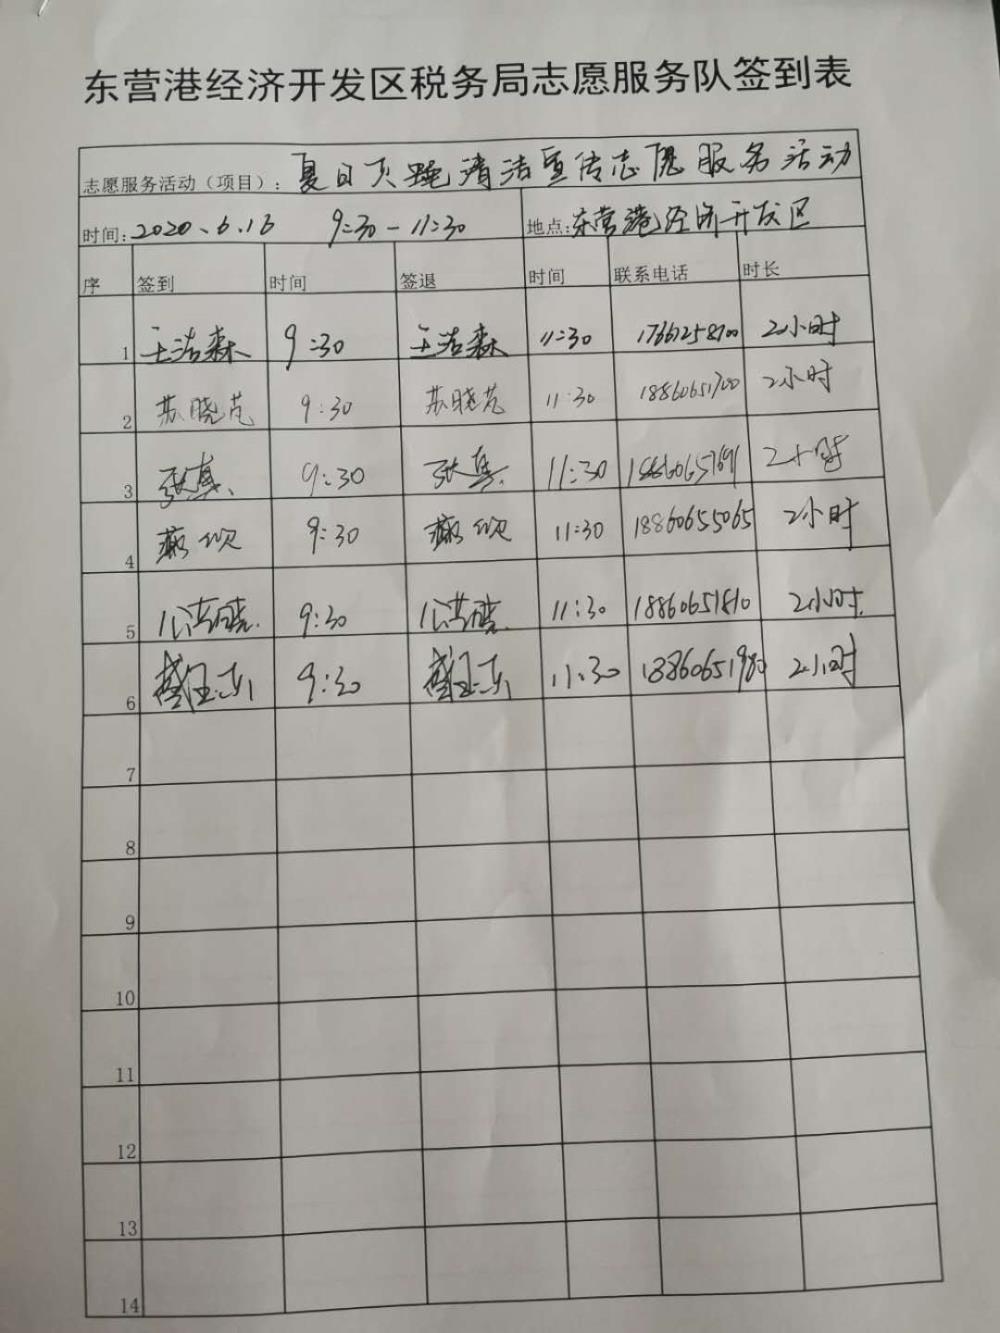 东营港经济开发区税务局志愿服务队签到表
志愿服务活动（项目）：夏日灭蝇清洁宣传志愿服务活动
时间：2020.6.16 9:30-11:30 地点：东营港经济开发区
序 签到 时间 签退 时间 联系电话 时长
1 王浩森 9:30 王浩森 11:30 17661258700 2小时
2 苏晓芃 9:30 苏晓芃 11:30 18860651700 2小时
3 张真 9:30 张真 11:30 18860651691 2小时
4 9:30 11:30 18860655065 2小时
5 9:30 11:30 18860651810 2小时
6 9:30 11:30 18860651980 2小时
7
8
9
10
11
12
13
14